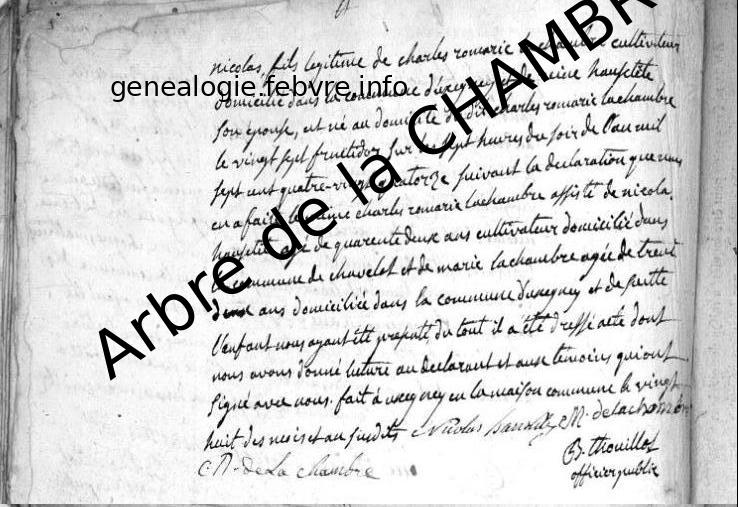 nicolas, fils legitime de charles romaric lachambre cultivateur
domicilié dans la commune d'uxegney et de reine hauptete
son épouse, est né au domicile du dit charles romaric lachambre
le vingt sept fructidor sur les sept heures du soir de l'an mil
sept cent quatre-vingt quatorze suivant la declaration que nous
en a faite le même charles romaric lachambre assisté de nicolas
agé de quarente deux ans cultivateur domicilié dans
la commune de chavelot et de marie lachambre agée de trent
deux ans domiciliée dans la commune d'uxegney et de sertte
l'enfant nous ayant été presenté du tout il a été dressé acte dont
nous avons donné lecture au declarant et aux temoins qui ont
signé avec nous. fait à uxegney en la maison commune le vingt
huit des mois et an susdits nicolas M. de lachambre
C R. de La chambre
B. thouillot
officier public
genealogie.febvre.info
Arbre de la CHAMBR